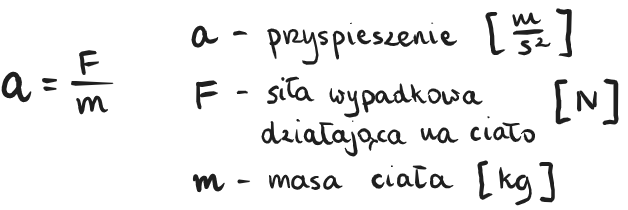 a = F/m
a - przyspieszenie [m/s²]
F - siła wypadkowa [N]
działająca na ciało
m - masa ciała [kg]